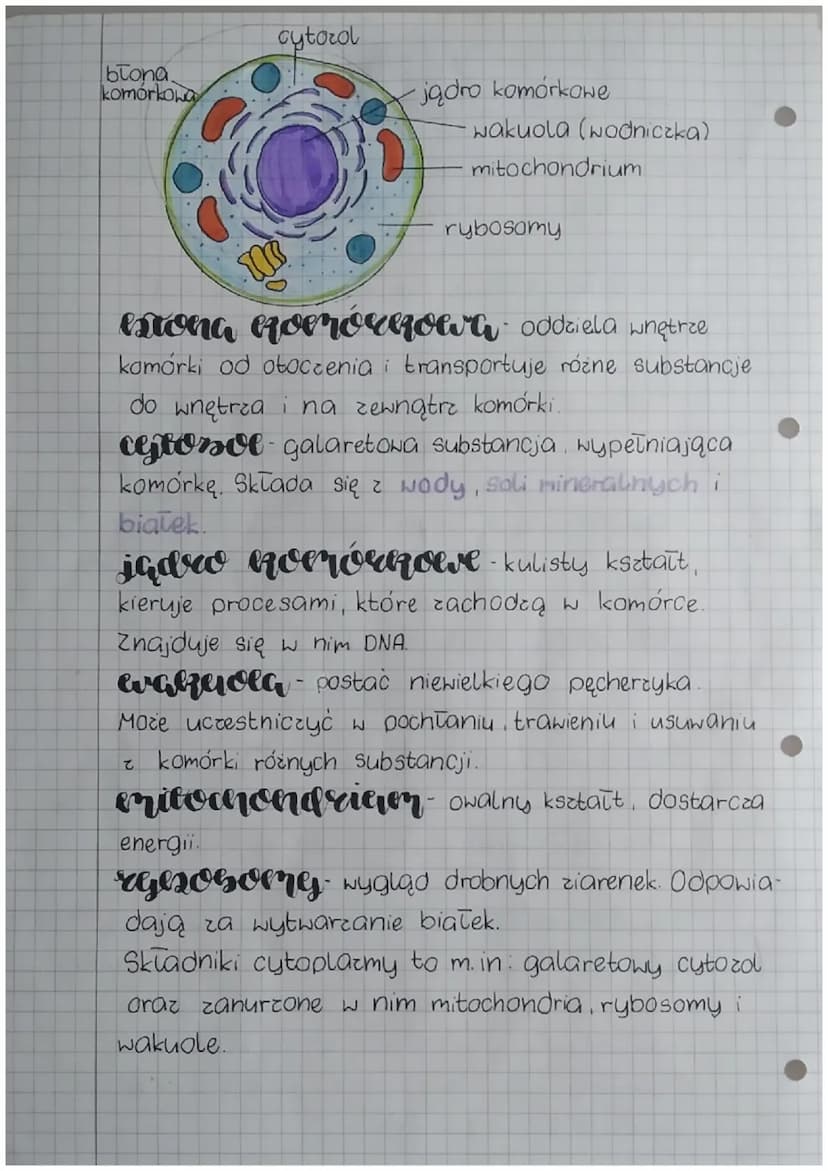 cytozol
błona
komórkowa
jądro komórkowe
wakuola (wodniczka)
mitochondrium
rybosomy
błona komórkowa - oddziela wnętrze
komórki od otoczenia i transportuje różne substancje
do wnętrza i na zewnątrz komórki.
cytozol - galaretowa substancja, wypełniająca
komórkę. Składa się z wody, soli mineralnych i
białek.
jądro komórkowe - kulisty kształt,
kieruje procesami, które zachodzą w komórce.
Znajduje się w nim DNA.
wakuola - postać niewielkiego pęcherzyka.
Może uczestniczyć w pochłaniu, trawieniu i usuwaniu
z komórki różnych substancji.
mitochondrium - owalny kształt, dostarcza
energii.
rybosomy - wygląd drobnych ziarenek. Odpowia-
dają za wytwarzanie białek.
Składniki cytoplazmy to m.in: galaretowy cytozol
oraz zanurzone w nim mitochondria, rybosomy i
wakuole.